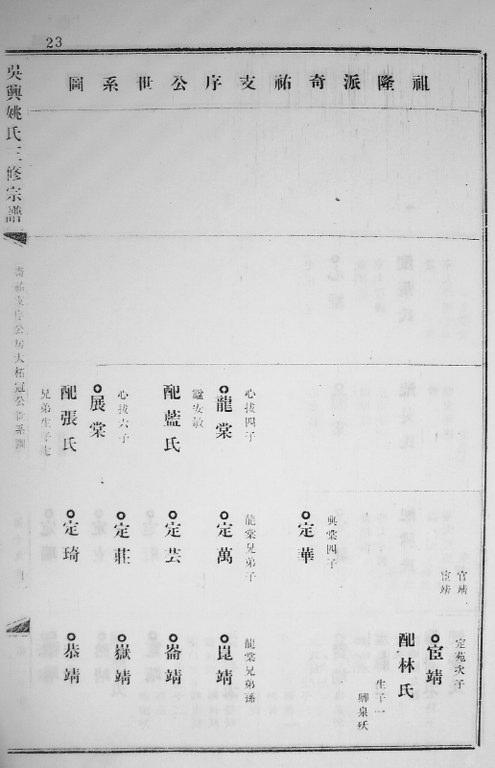 23
祖隆派奇祐支序公世系圖
吳興姚氏三修宗譜
宦靖
宦靖
心拔四子
龍棠
諡安敏
配藍氏
心拔六子
展棠
配張氏
兄弟生子七
興棠四子
定華
龍棠兄弟子
定萬
定芸
定莊
定琦
定苑次子
宦靖
配林氏
生子一
龍棠兄弟孫
崑靖
崙靖
嶽靖
恭靖